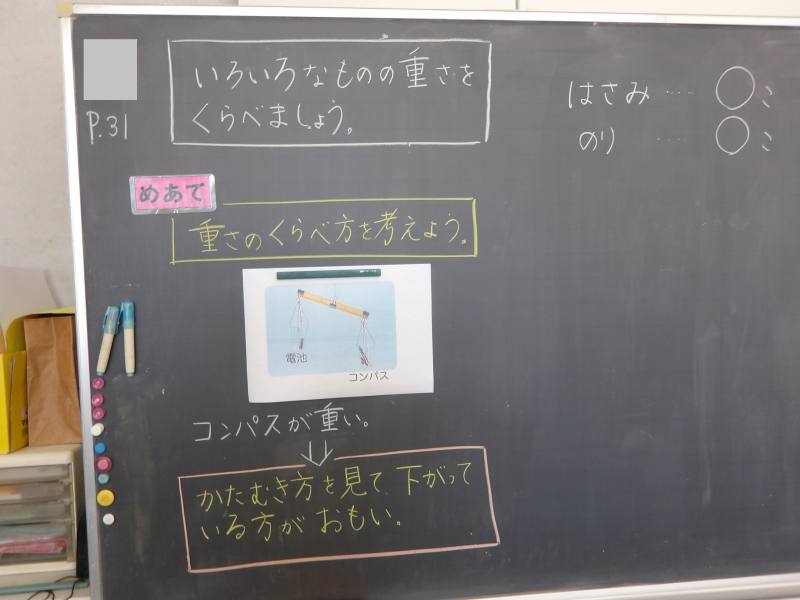 P.31
いろいろなものの重さを
くらべましょう。
めあて
重さのくらべ方を考えよう。
電池
コンパス
コンパスが重い。
⇓
かたむき方を見て 下がって
いる方が おもい。
はさみ…○こ
のり…○こ